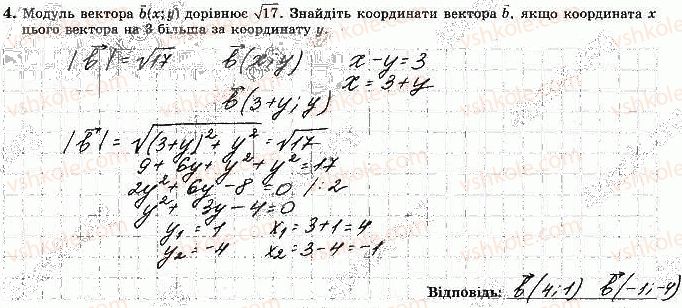 4. Модуль вектора b̄(x; y) дорівнює √17. Знайдіть координати вектора b̄, якщо координата x
цього вектора на 3 більша за координату y.
|b⃗| = √17 b⃗(x; y) x - y = 3
x = 3 + y
b⃗(3+y; y)
|b⃗| = √((3+y)² + y²) = √17
9 + 6y + y² + y² = 17
2y² + 6y - 8 = 0 /:2
y² + 3y - 4 = 0
y₁ = 1 x₁ = 3+1 = 4
y₂ = -4 x₂ = 3-4 = -1
Відповідь: b⃗(4; 1) b⃗(-1; -4)